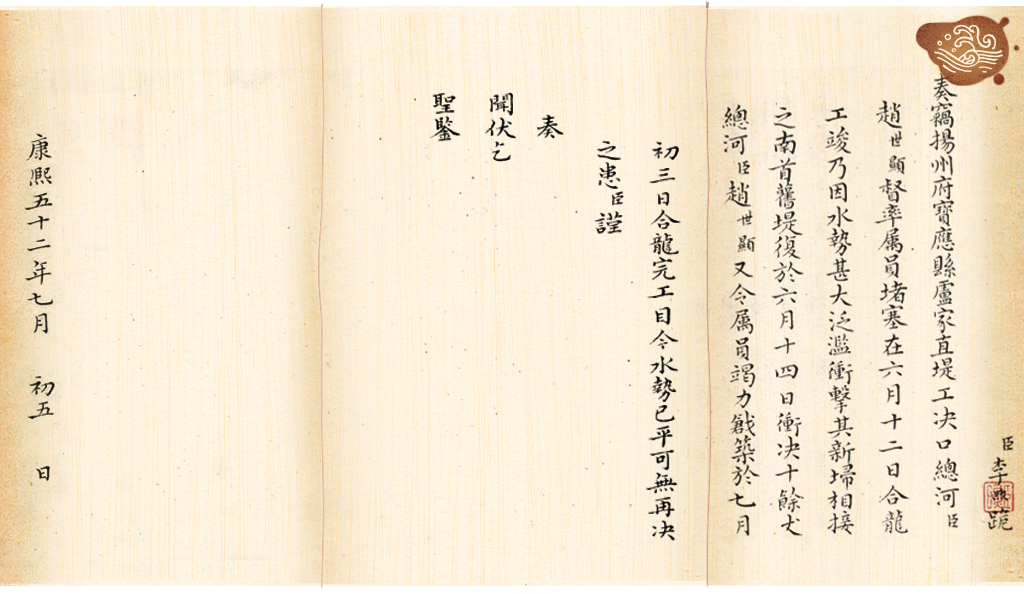 臣李煦跪
奏竊揚州府寶應縣盧家直堤工决口總河臣
趙世顯督率属員堵塞在六月十二日合龍
工竣乃因水勢甚大泛濫衝擊其新埽相接
之南首舊堤復於六月十四日衝决十餘丈
總河臣趙世顯又令属員竭力戧築於七月
初三日合龍完工目今水勢已平可無再决
之患臣謹
奏
聞伏乞
聖鑒
康熙五十二年七月 初五 日